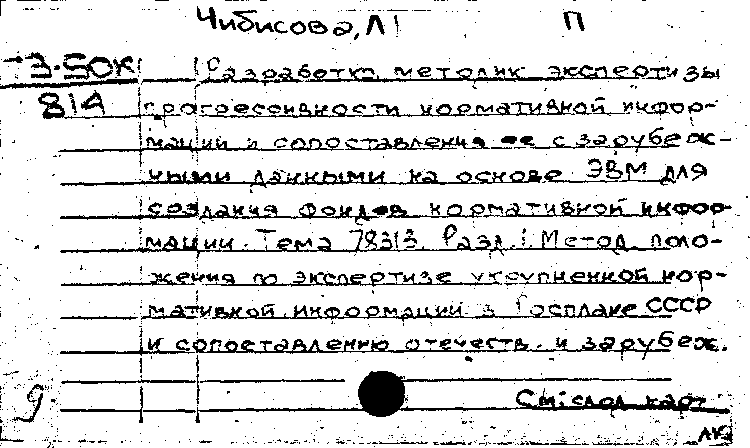 Чибисова, Л П
Т3-50К Разработка методик экспертизы
814 прогрессивности нормативной инфор-
мации и сопоставления ее с зарубеж-
ными данными на основе ЭВМ для
создания фондов нормативной инфор-
мации. Тема 78313. Разд. 1. Метод. поло-
жения по экспертизе укрупненной нор-
мативной информации в Госплане СССР
и сопоставлению отечеств. и зарубеж.
См. след. карт.
9